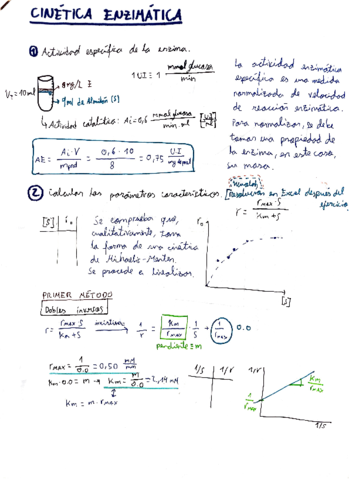 CINÉTICA ENZIMÁTICA
① Actividad específica de la enzima.
V_T = 10 ml
8 mg/L E
9 ml de Almidón (S)
1 UI ≡ 1 mmol glucosa / min
↳ Actividad catalítica: Ai = 0,6 mmol glucosa / min · ml
AE = Ai · V / m = 0,6 · 10 / 8 = 0,75 U.I
La actividad enzimática
específica es una medida
normalizada de velocidad
de reacción enzimática.
Para normalizar, se debe
tomar una propiedad de
la enzima, en este caso,
su masa.
② Calcular los parámetros característicos. [Resolución en Excel después del
ejercicio
[S] | r₀
Se comprueba que,
cualitativamente, toma
la forma de una cinética
de Michaelis-Menten.
Se procede a linealizar.
r₀
[S]
r = rmax · S / Km + S
PRIMER MÉTODO
Dobles inversas
r = rmax · S / Km + S
1/r = Km/rmax · 1/S + 1/rmax
0.0
pendiente = m
rmax = 1/0.0 = 0,50
Km · 0.0 = m → Km = m/0.0 = 2,14 mM
Km = m · rmax
1/S | 1/r
1/r
Km/rmax
1/rmax
1/S